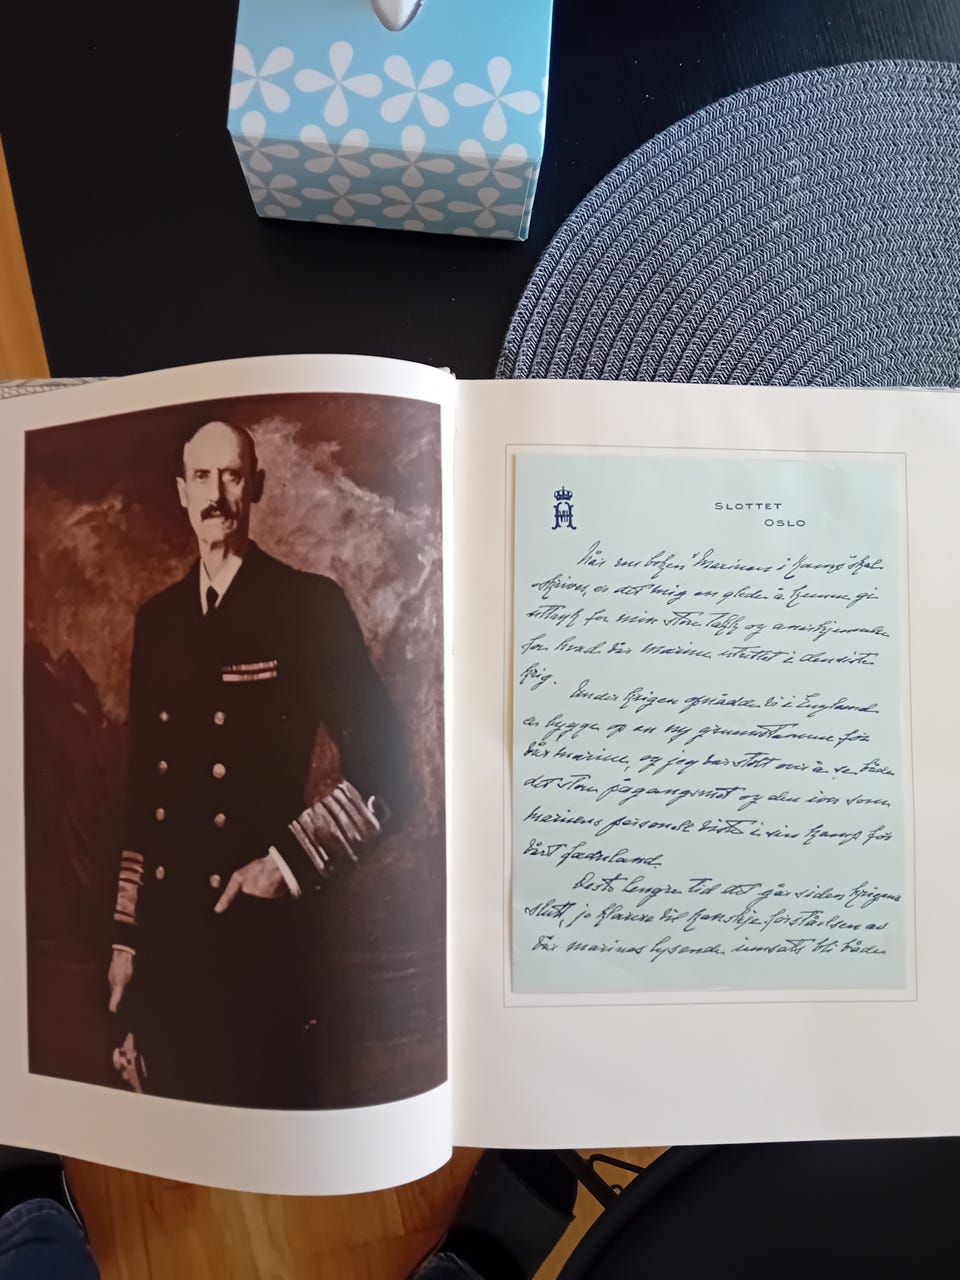 SLOTTET
OSLO
Når en boken "Marinen i Kamp" skal
skrives, er det mig en glede å kunne gi
uttryk for min store takk og anerkjennelse
for hvad vår marine utrettet i den siste
krig.
Under krigen opnådde vi i England
å bygge op en ny grunnstamme for
vår marine, og jeg var stolt over å se både
det store pågangsmot og den iver som
marinens personell viste i sin kamp for
vårt fedreland.
Desto lengre tid det går siden krigens
slutt, jo klarere vil kanskje forståelsen av
vår marines lysende innsats bli både